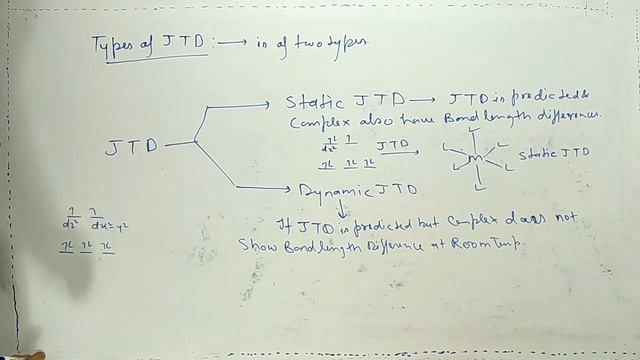 Types of JTD :→ is of two types.
Static JTD → JTD is predicted &
Complex also have Bond length differences.
JTD
1L 1
dz² JTD
1L 1L 1L
L
L L
M
L L
L
Static JTD
Dynamic JTD
1 1
dz² dx²-y²
1L 1L 1L
If JTD is predicted but Complex does not
Show Bond length Difference at Room Temp.